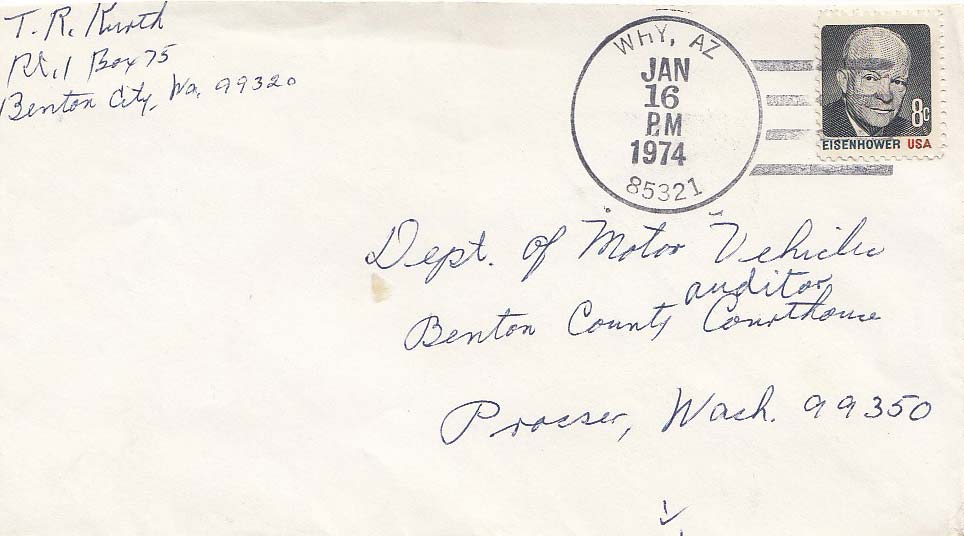 T. R. Kurth
Rt. 1 Box 75
Benton City, Wa. 99320
WHY, AZ
JAN
16
PM
1974
85321
8c
EISENHOWER USA
Dept. of Motor Vehicles
auditor
Benton County Courthouse
Prosser, Wash. 99350